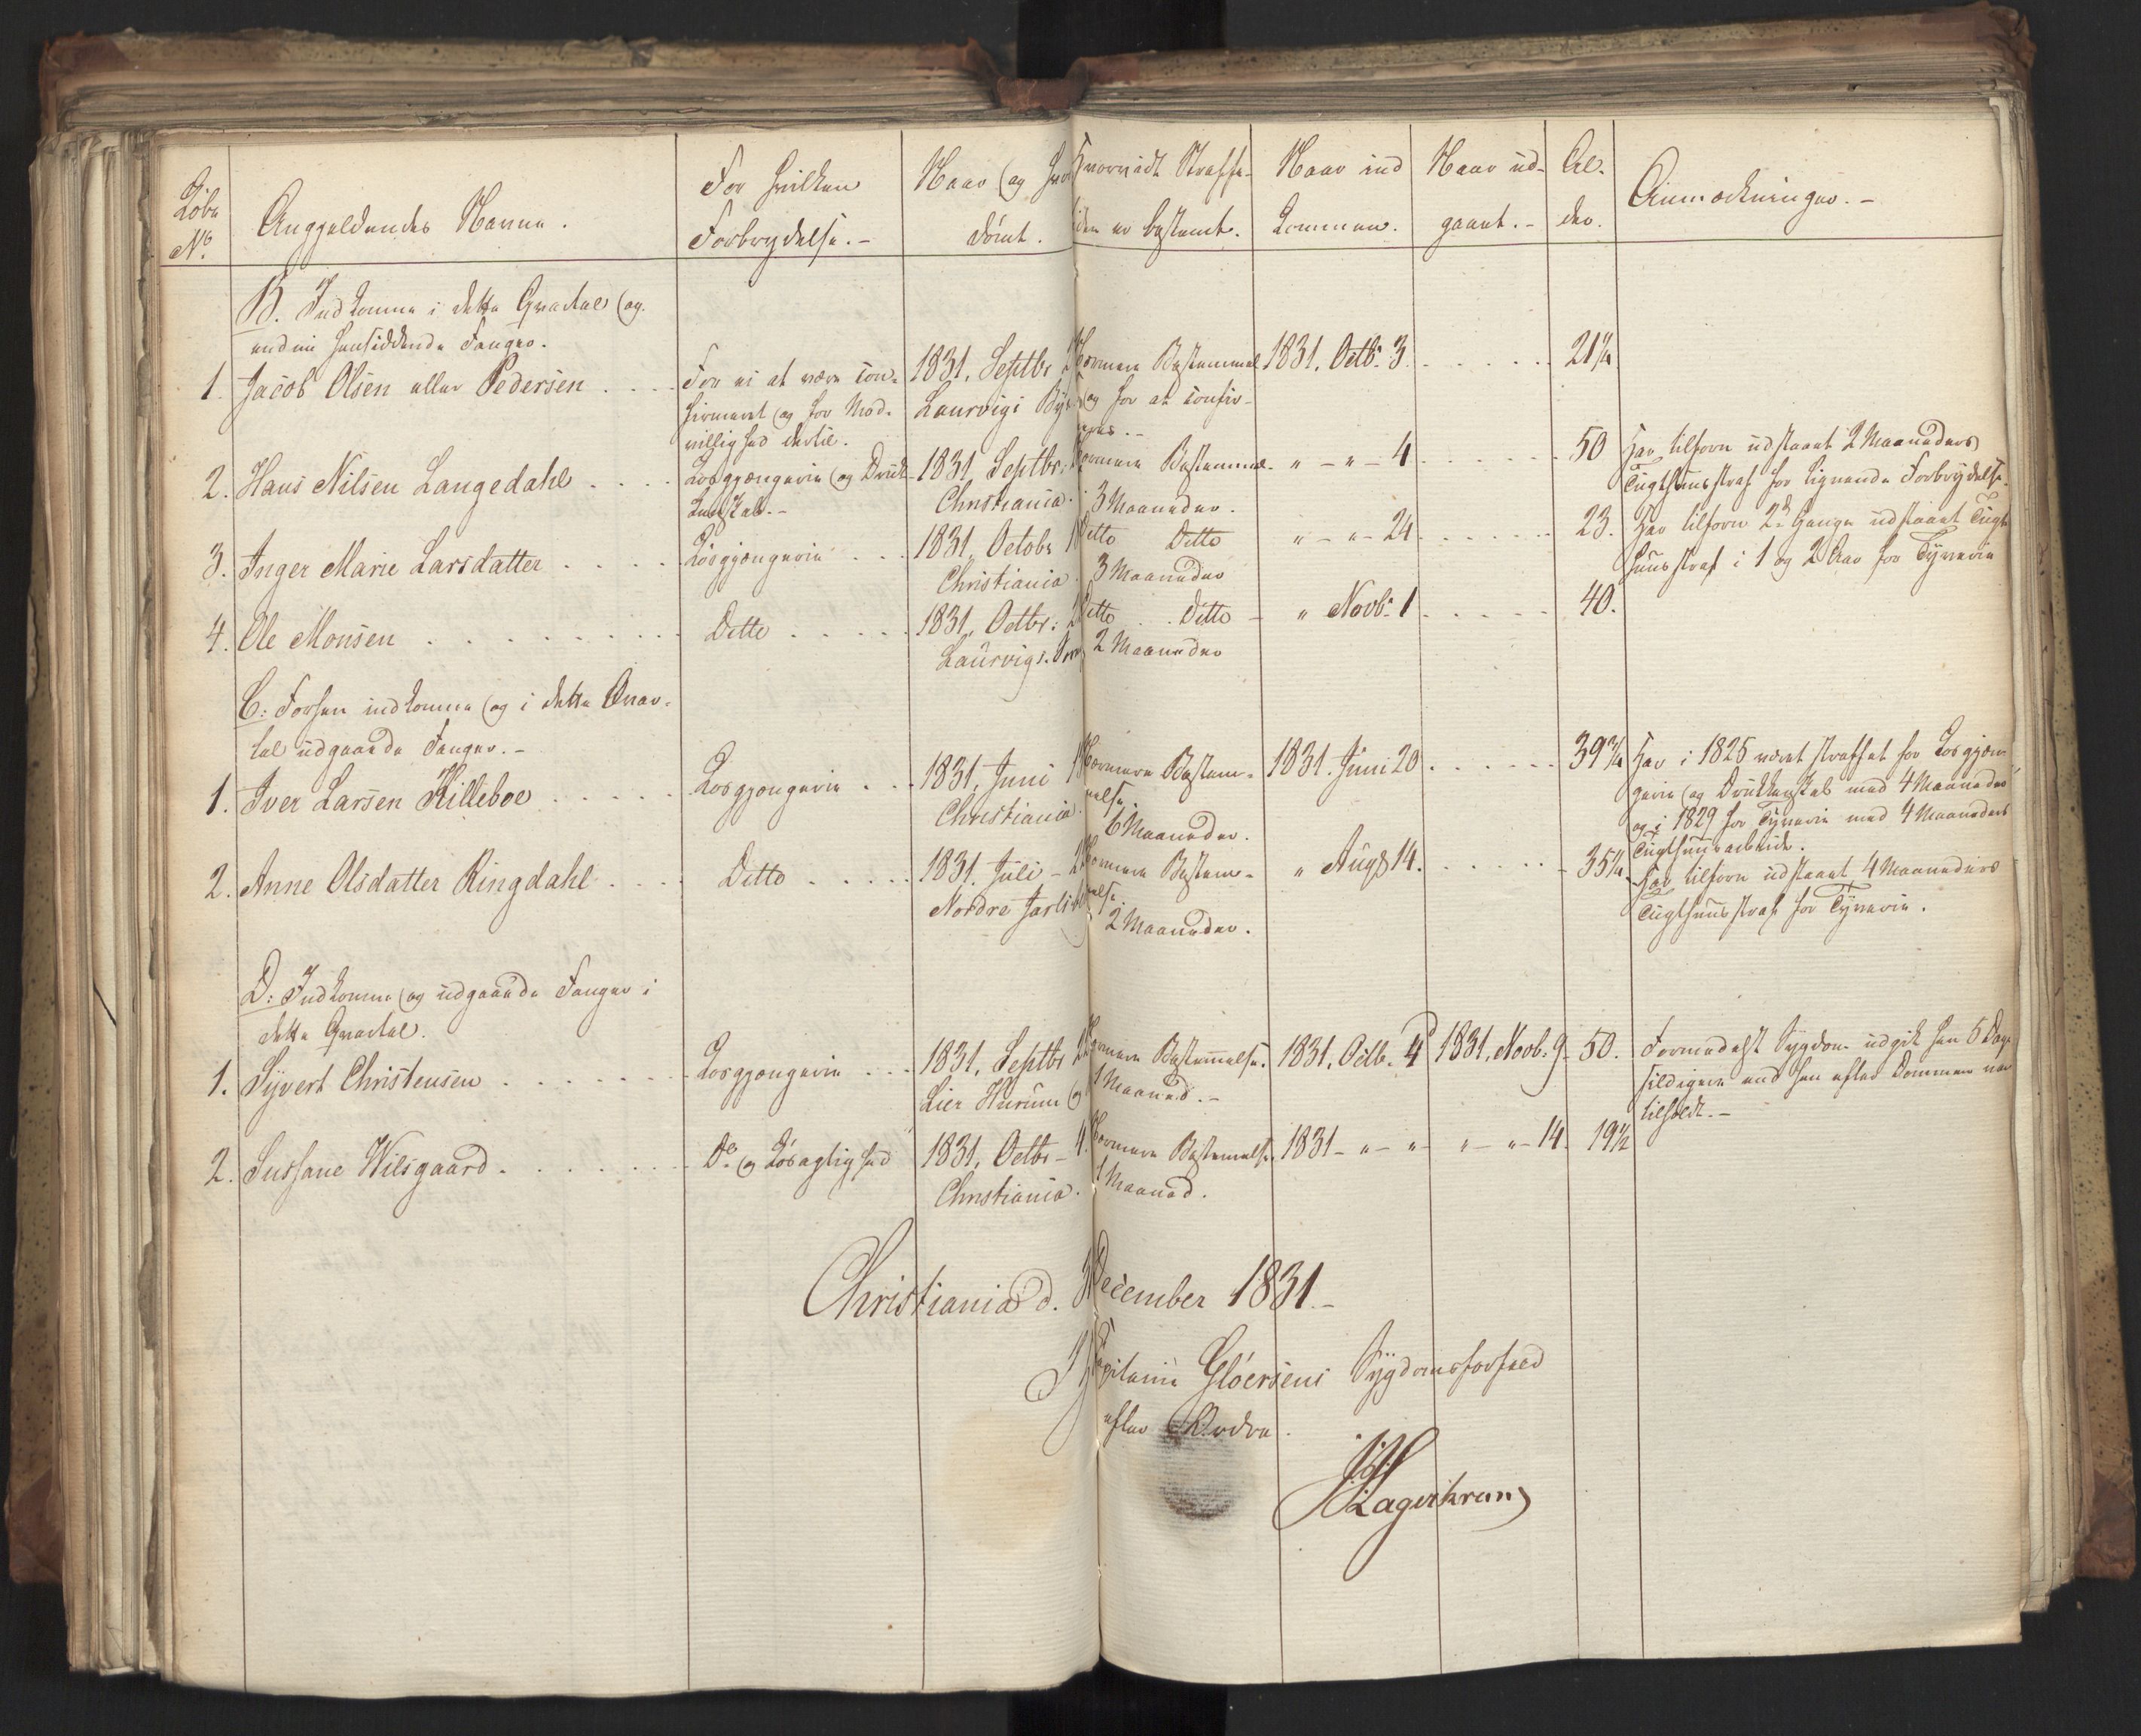 Löbe
No.
Anggjeldendes Navne.
For hvilken
Forbrydelse.-
Naar og hvor
dömt.
Hvorvidt Straffe-
tiden er bestemt.
Naar ind
kommen.
Naar ud-
gaaet.-
Al-
der.
Anmærkninger.-
B. Indkomne i dette Qvartal og
endnu hensiddende Fanger.
1. Jacob Olsen eller Pedersen
For ei at være con-
firmeret og for Mod-
villighed dertil.
1831, Septbr
Laurvigs
Nærmere Bestemmel
og for at confir-
meres.-
1831. Octb. 3
21 1/4
2. Hans Nilsen Langedahl
Løsgjængerie og Druk-
kenskab.-
1831 Septbr.
Christiania.
Nærmere Bestemmel-
3 Maaneder.
" - " - 4
50
Har tilforn udstaaet 2 Maaneders
Tugthuusstraf for lignende Forbrydelse.
3. Inger Marie Larsdatter
Løsgjængerie
1831, Octobr
Christiania.
Ditto Ditto
3 Maaneder
" - " - 24
23.
Har tilforn 2de Gange udstaaet Tugt-
huusstraf i 1 og 2 Aar for Tyverie
4. Ole Monsen
Ditto
1831, Octbr:
Laurvigs.
Ditto Ditto -
2 Maaneder
" Novb. 1
40.
C: Forhen indkomne og i dette Qvar-
tal udgaaede Fanger.-
1. Iver Larsen Killeboe
Løsgjængerie
1831, Juni
Christiania.
Nærmere Bestem-
melse.
6 Maaneder.
1831. Juni 20
39 3/4
Har i 1825 været straffet for Løsgjæn-
gerie og Drukkenskab med 4 Maaneder
og i 1829 for Tyverie med 4 Maaneders
Tugthuusarbeide.
2. Anne Olsdatter Ringdahl
Ditto
1831. Juli -
Nordre Jarlsb
Nærmere Bestem-
melse.
2 Maaneder.
" Aug. 14.
35 1/4
Har tilforn udstaaet 4 Maaneders
Tugthuusstraf for Tyverie.
D: Indkomne og udgaaede Fanger i
dette Qvartal.
1. Syvert Christensen
Løsgjængerie
1831, Septbr
Lier Hurum og
Nærmere Bestemmelse.
1 Maaned.-
1831. Octb. 4
1831, Novb. 9
50.
Formedelst Sygdom udgik han 5 Dage
sildigere end han efter Dommen var
tilholdt.-
2. Sussane Wilsgaard
Do. og Løsagtighed
1831, Octbr - 4.
Christiania.
Nærmere Bestemmelse
1 Maaned.
1831 - " - " -
" - " - 14.
19 1/2
Christiania d. December 1831.-
I Capitain Glöersens Sygdomsforfald
efter Ordre.